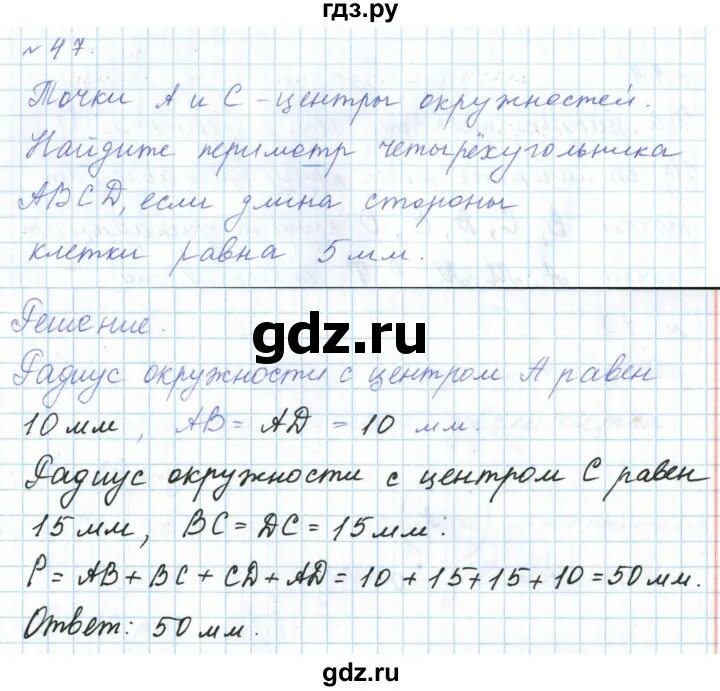 гдз.ру
№ 47.
Точки А и С - центры окружностей.
Найдите периметр четырёхугольника
ABCD, если длина стороны
клетки равна 5 мм.
Решение.
gdz.ru
Радиус окружности с центром А равен
10 мм, AB = AD = 10 мм.
Радиус окружности с центром С равен
15 мм, BC = DC = 15 мм.
P = AB + BC + CD + AD = 10 + 15 + 15 + 10 = 50 мм.
Ответ: 50 мм.
gdz.ru